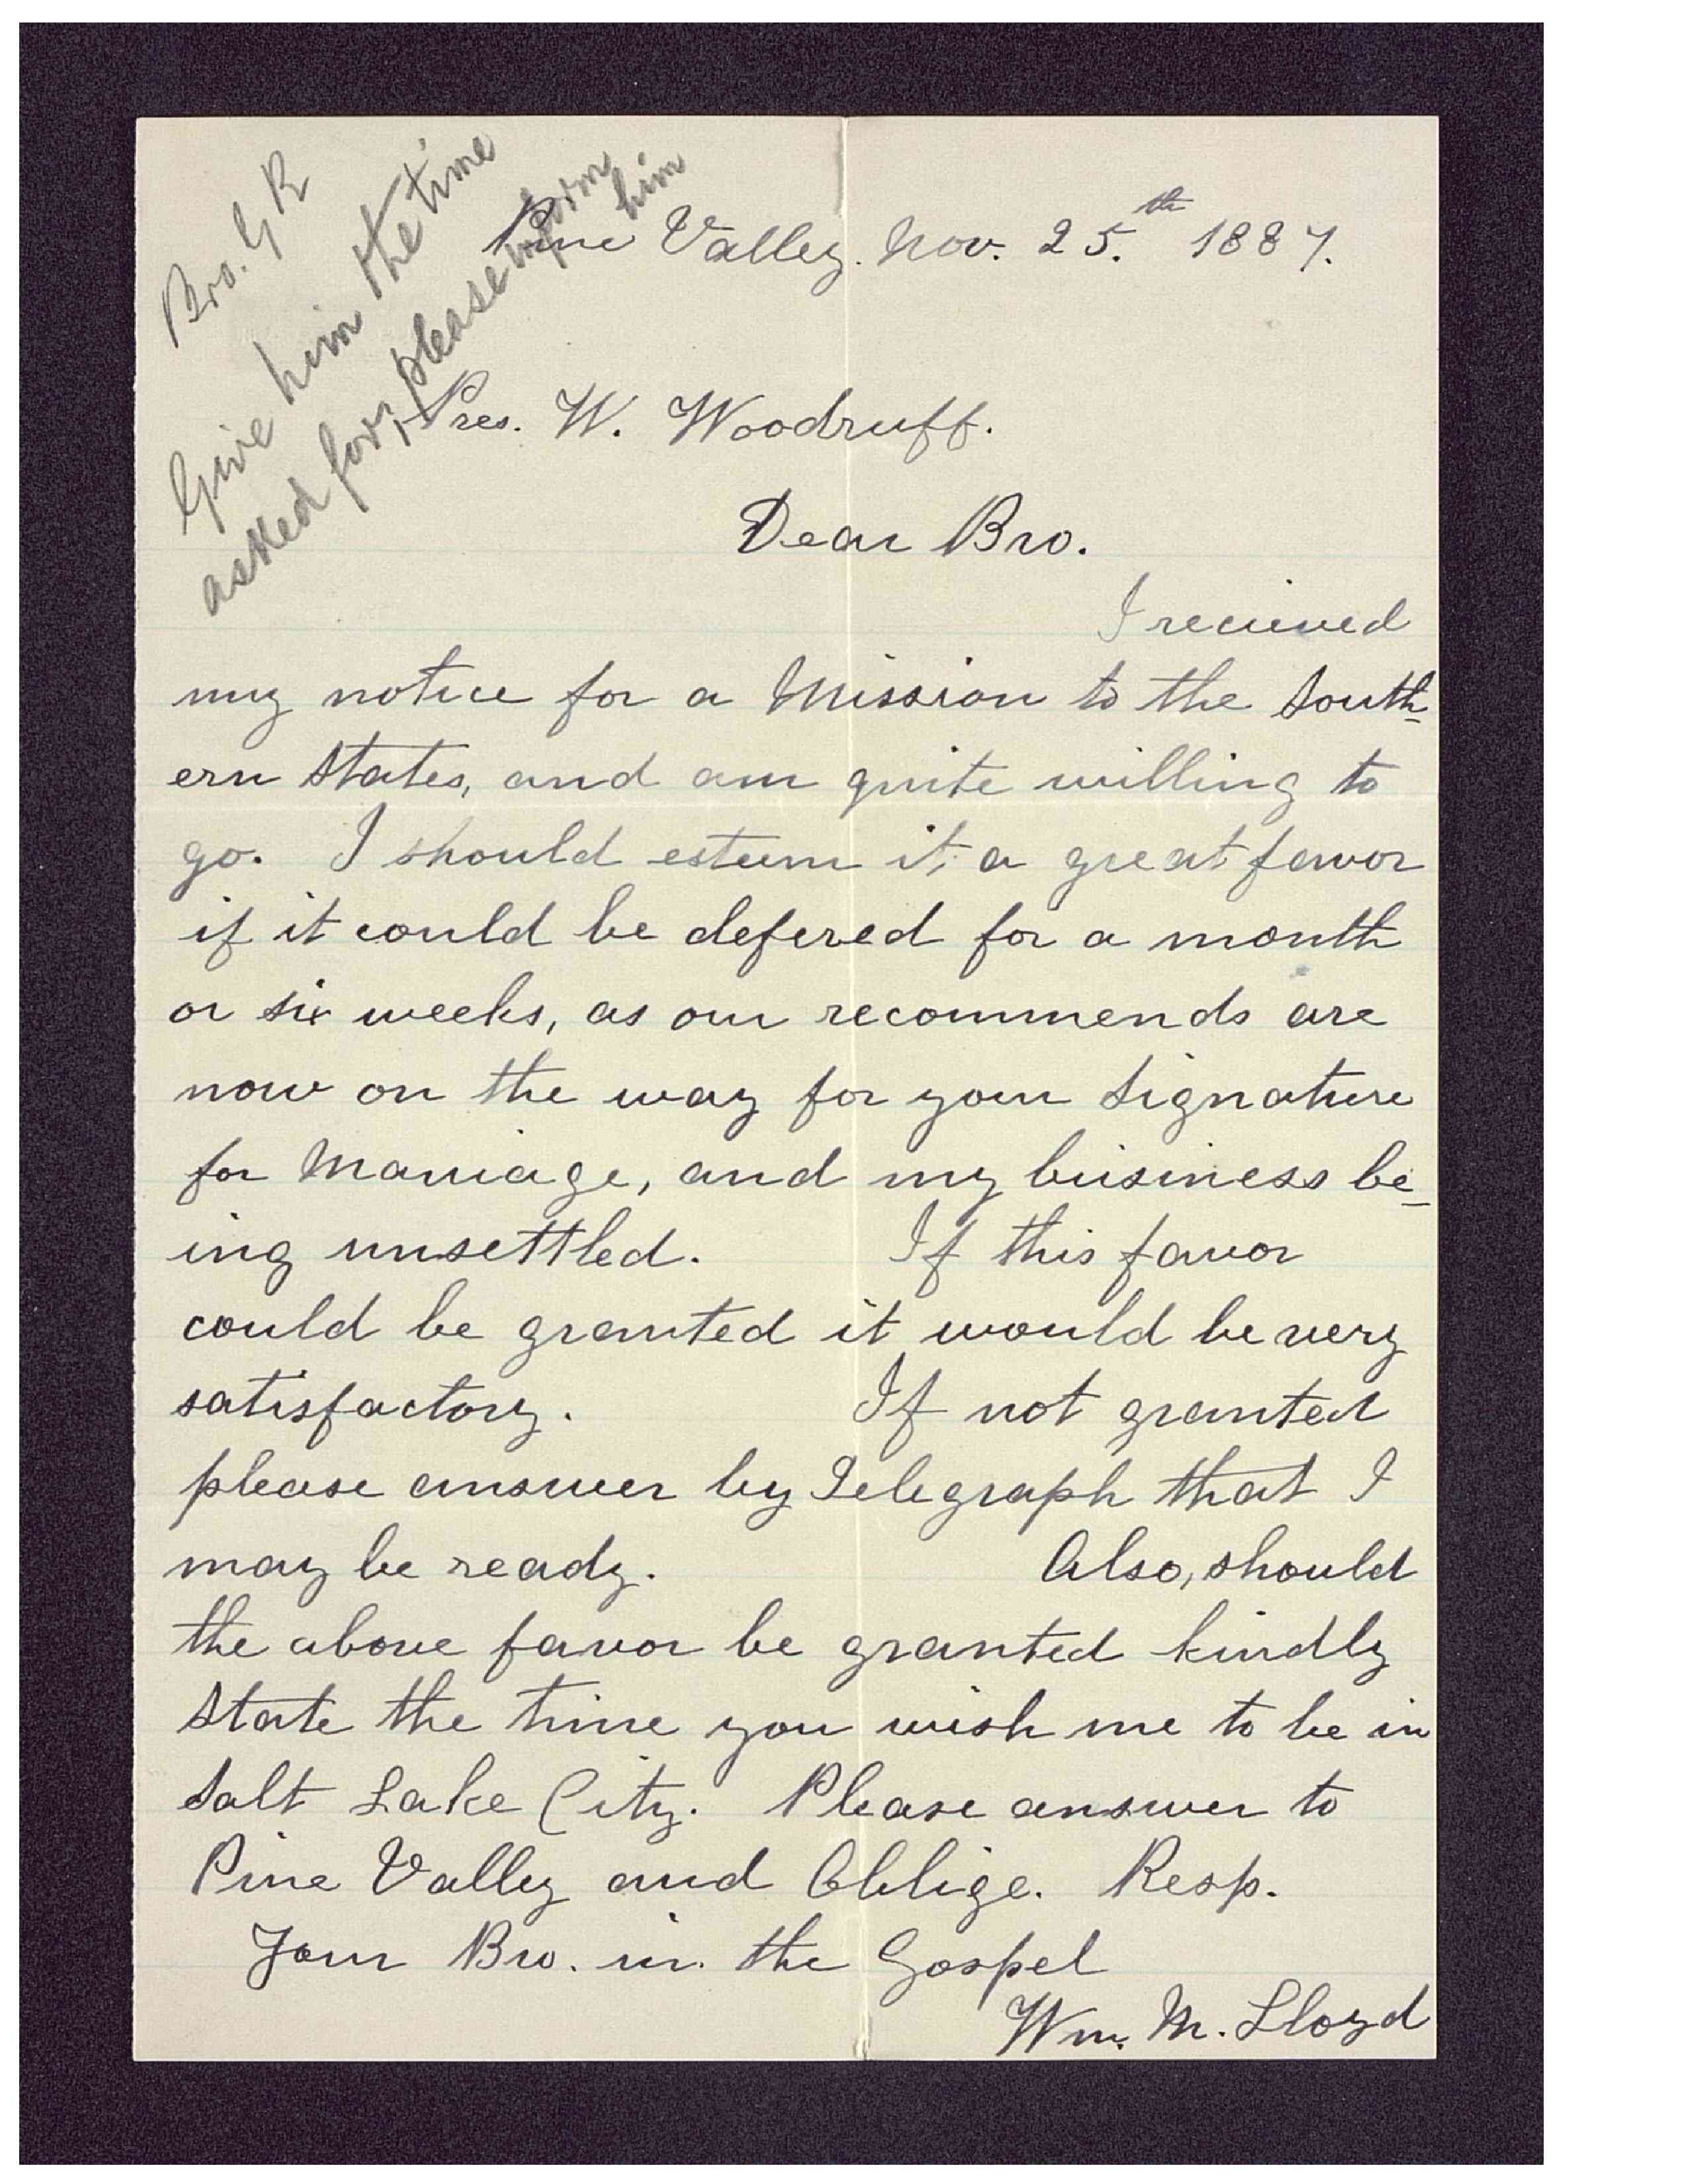 Bro. G R
Give him the time
asked for, please inform
him
Pine Valley. Nov. 25.th 1887.
Pres. W. Woodruff.
Dear Bro.
I recieved
my notice for a Mission to the South-
ern States, and am quite willing to
go. I should esteem it, a great favor
if it could be defered for a month
or six weeks, as our recommends are
now on the way for your signature
for Marriage, and my business be-
ing unsettled. If this favor
could be granted it would be very
satisfactory. If not granted
please answer by Telegraph that I
may be ready. Also, should
the above favor be granted kindly
state the time you wish me to be in
Salt Lake City. Please answer to
Pine Valley and Oblige. Resp.
Your Bro. in. the Gospel
Wm. M. Lloyd